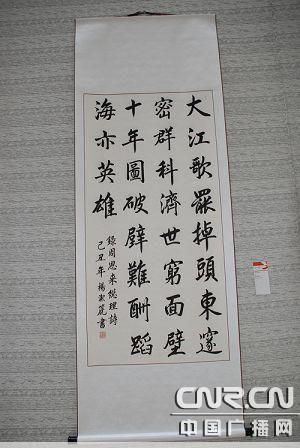 大江歌罷掉頭東邃
密群科濟世窮面壁
十年圖破壁難酬蹈
海亦英雄
錄周恩来總理詩
己丑年楊書
CNR.CN
中国广播网